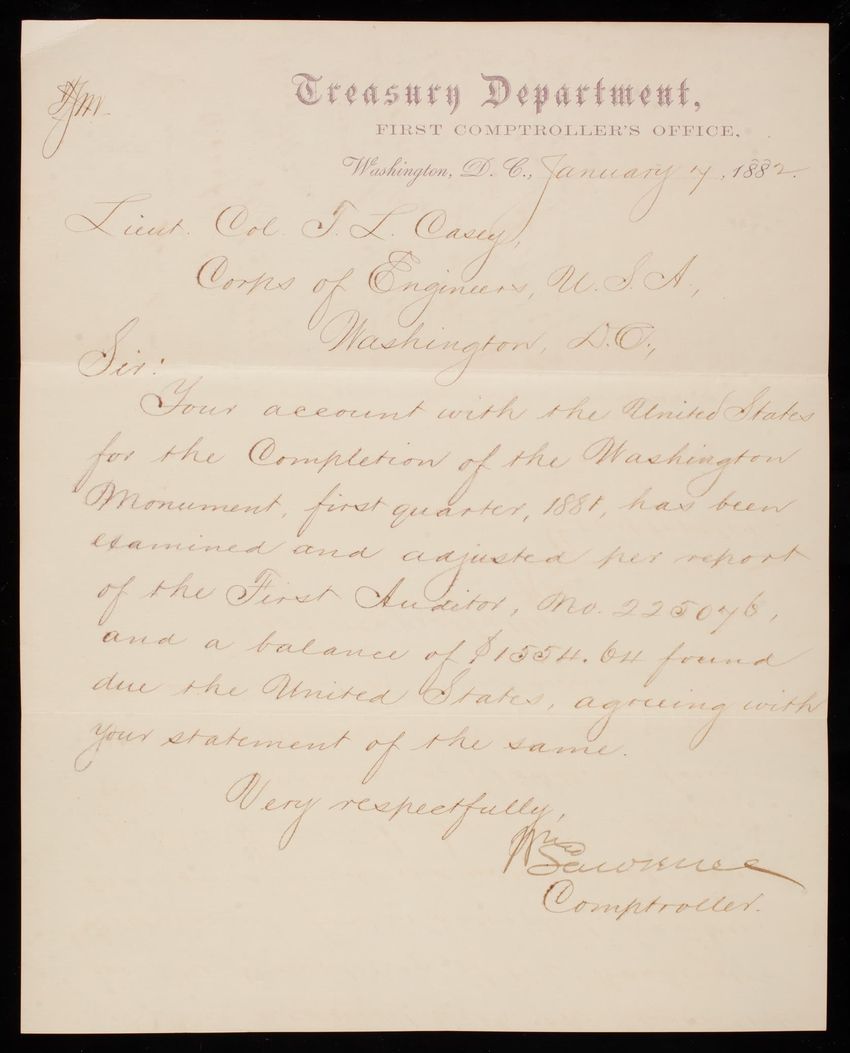 Treasury Department,
FIRST COMPTROLLER'S OFFICE,
Washington, D. C., January 7, 1882.
Lieut. Col. T. L. Casey,
Corps of Engineers, U. S. A.,
Washington, D.C.,
Sir:
Your account with the United States
for the Completion of the Washington
Monument, first quarter, 1881, has been
examined and adjusted per report
of the First Auditor, No. 225076,
and a balance of $1554.64 found
due the United States, agreeing with
your statement of the same.
Very respectfully,
Wm Lawrence
Comptroller.